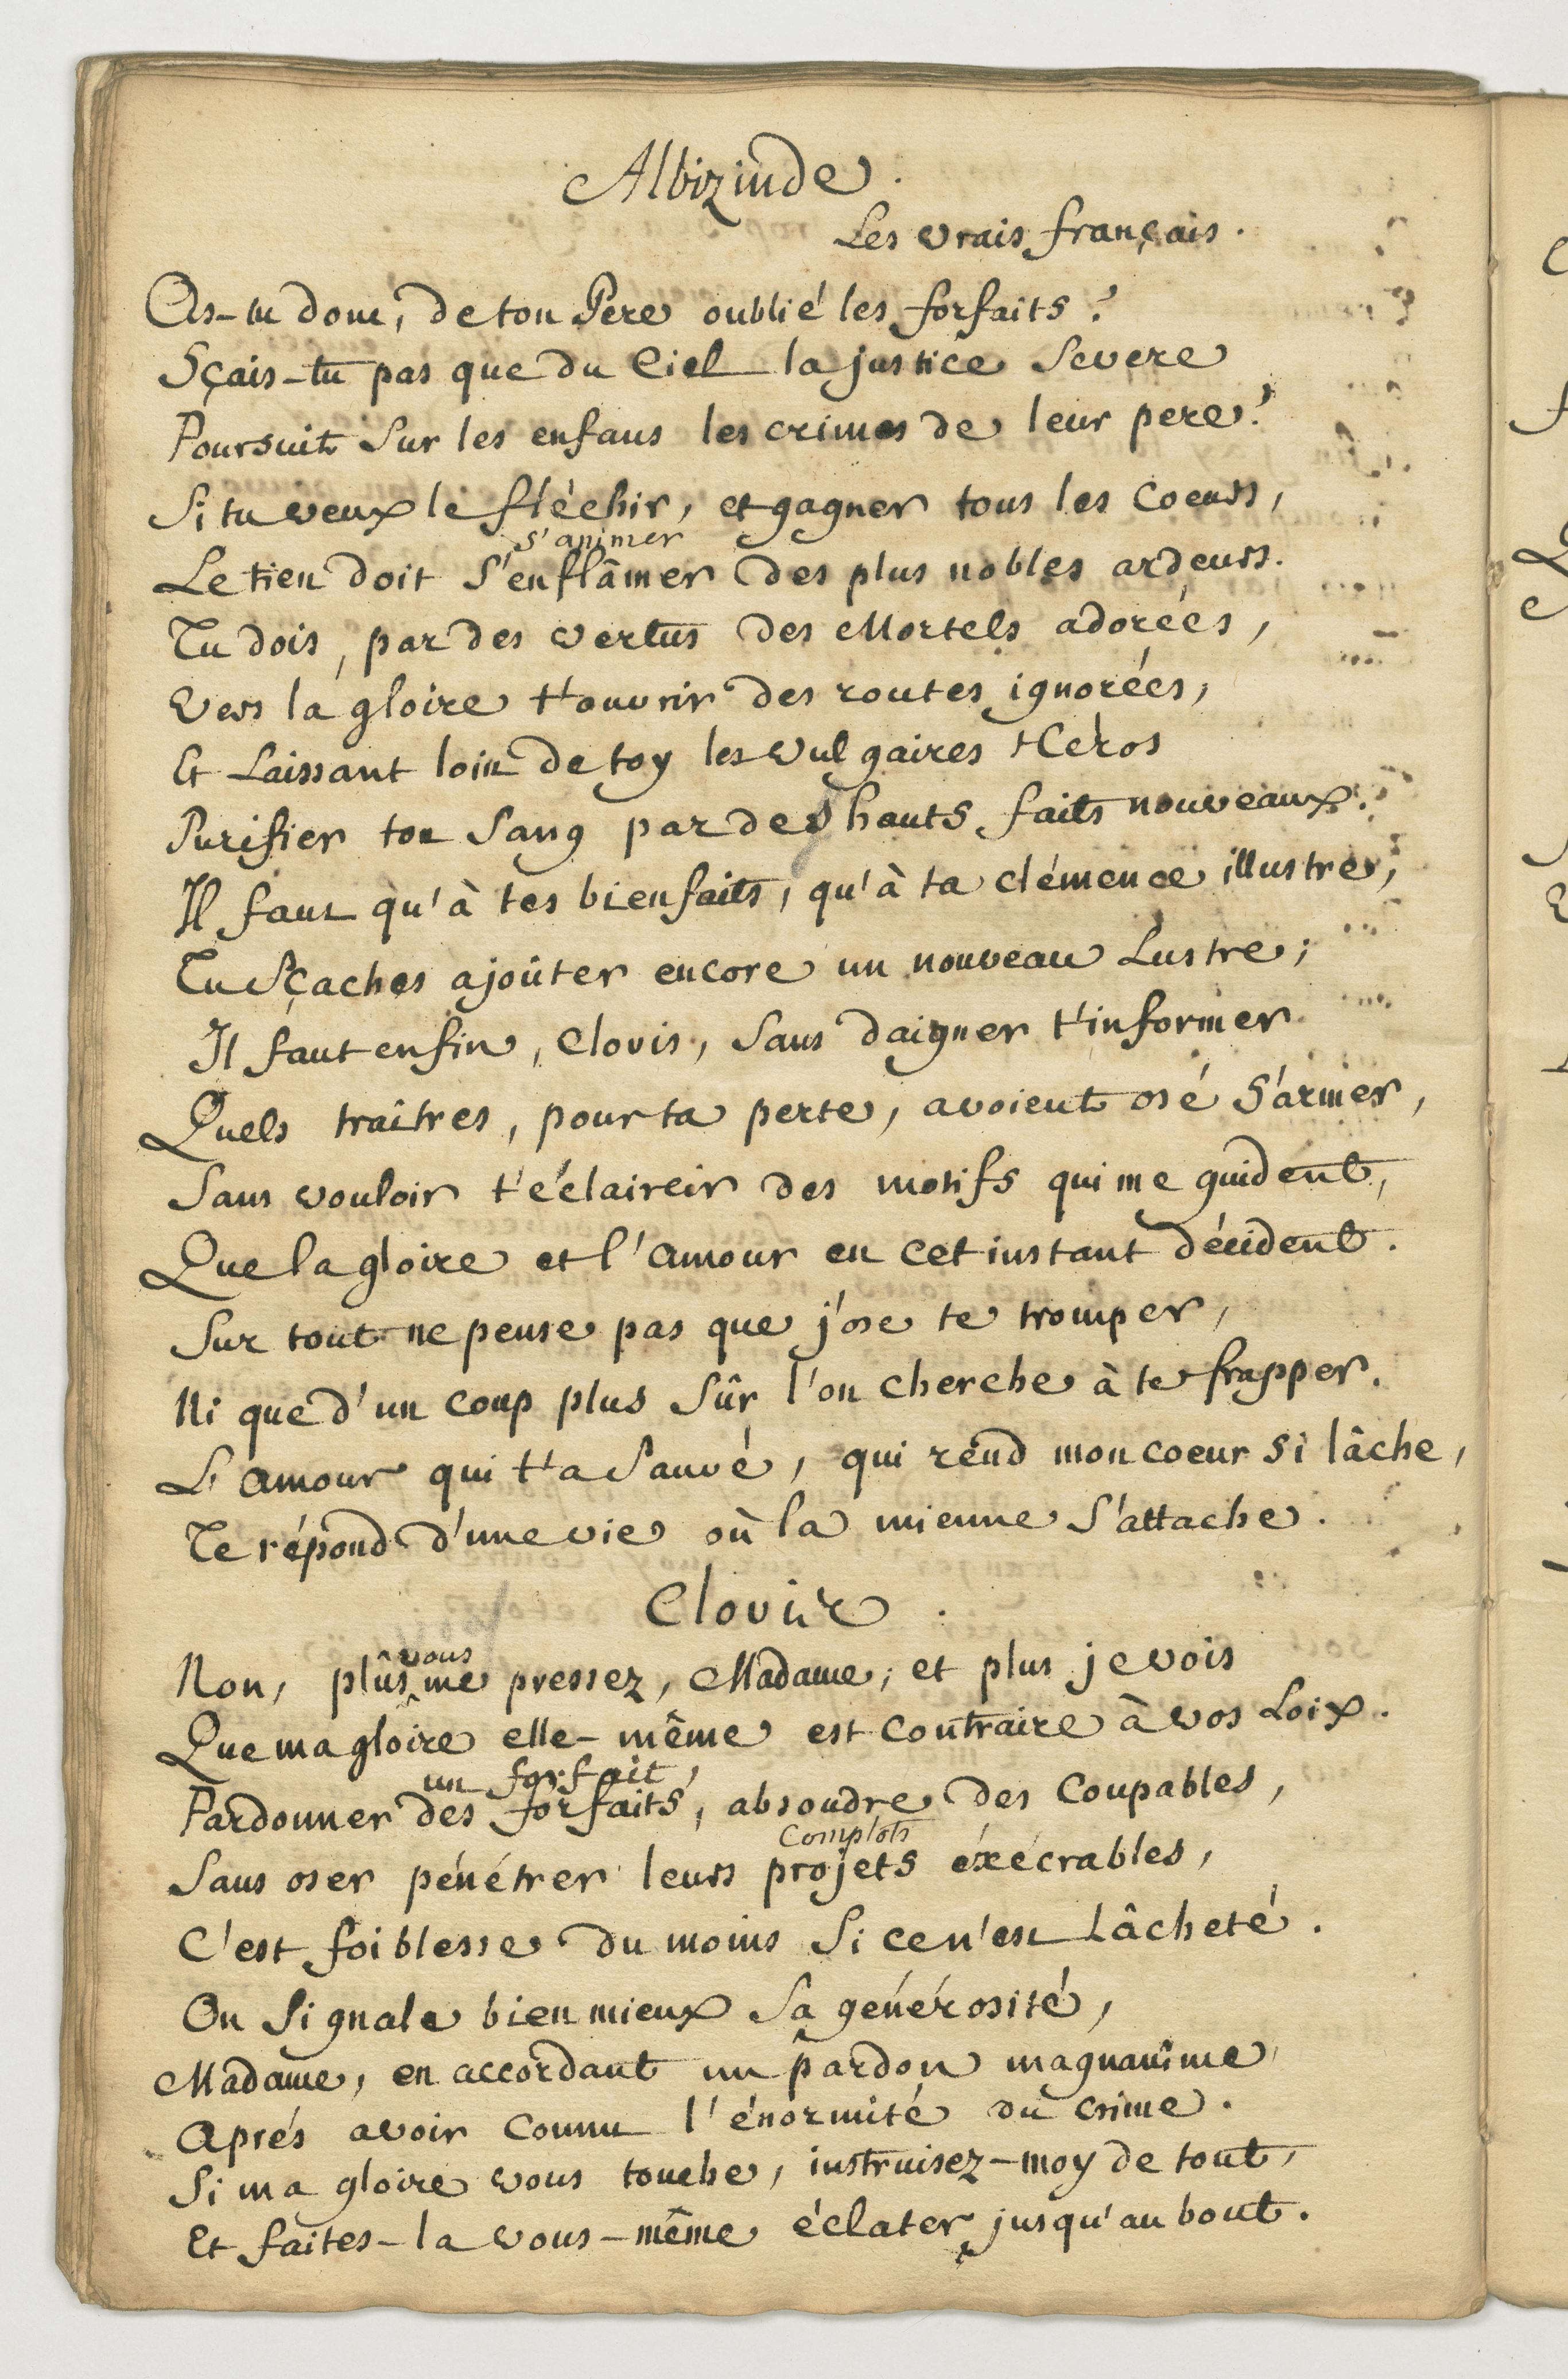 Albizinde.
Les vrais français.
As-tu donc, de ton Pere oublié les forfaits?
Sçais-tu pas que du Ciel la justice Severe
Poursuit Sur les enfans les crimes de leur pere?
Si tu veux le fléchir, et gagner tous les Coeurs,
s'animer
Le tien doit S'enflâmer des plus nobles ardeurs.
Tu dois, par des vertus des Mortels adorées,
Vers la gloire t'ouvrir des routes ignorées,
Et Laissant loin de toy les vulgaires Heros
Purifier ton Sang par des hauts faits nouveaux.
Il faut qu'à tes bienfaits, qu'à ta clémence illustre,
Tu Sçaches ajoûter encore un nouveau Lustre;
Il faut enfin, Clovis, Sans daigner t'informer
Quels traîtres, pour ta perte, avoient osé S'armer,
Sans vouloir t'éclaircir des motifs qui me guident,
Que la gloire et l'amour en cet instant décident.
Sur tout ne pense pas que j'ose te tromper,
Ni que d'un coup plus Sûr l'on cherche à te frapper.
L'amour qui t'a Sauvé, qui rend mon coeur Si lâche,
Te répond d'une vie où la mienne S'attache.
Clovis
vous
Non, plus me pressez, Madame, et plus je vois
Que ma gloire elle-même est Contraire à vos Loix.
un forfait,
Pardonner des forfaits, absoudre des Coupables,
Complots
Sans oser pénétrer leurs projets éxécrables,
C'est foiblesse du moins Si ce n'est Lâcheté.
On Signale bien mieux Sa générosité,
Madame, en accordant un pardon magnanime
Aprés avoir Connu l'énormité du crime.
Si ma gloire vous touche, instruisez-moy de tout,
Et faites-la vous-même éclater jusqu'au bout.